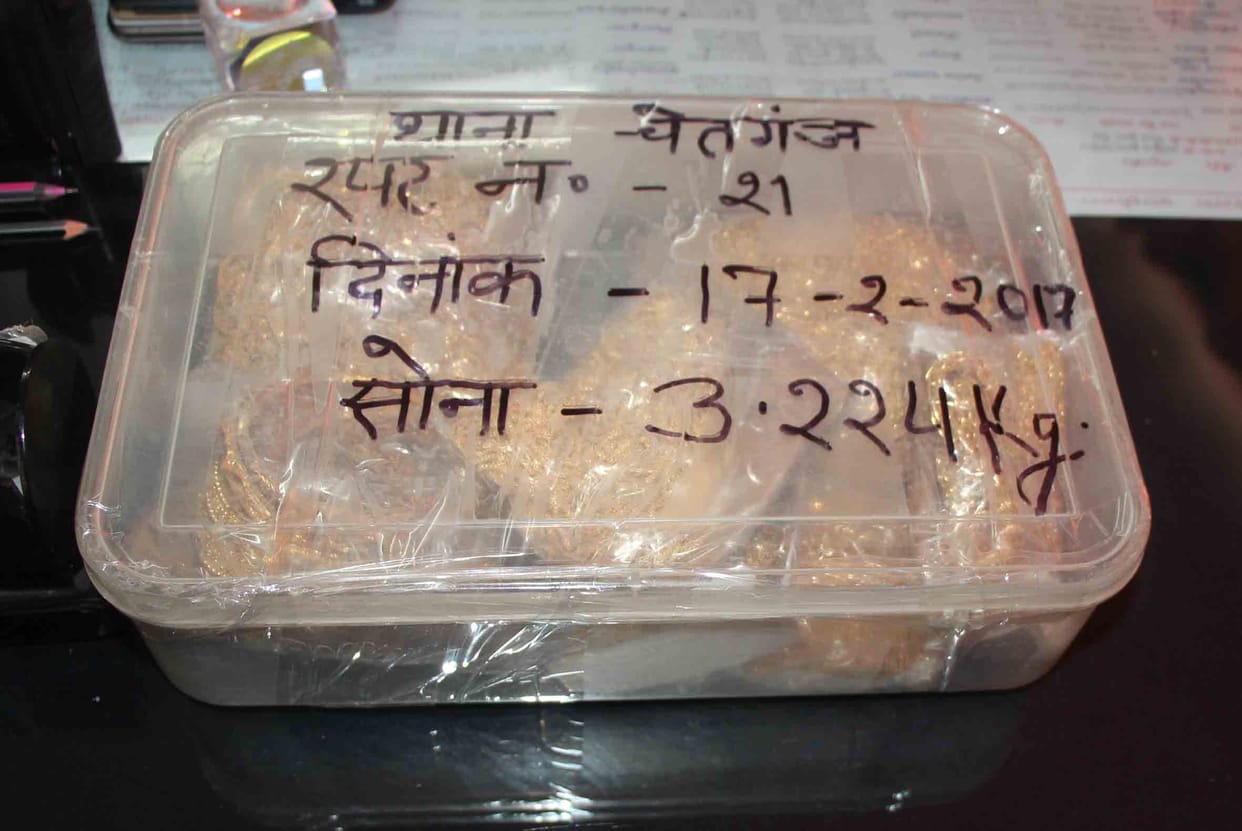 थाना चेतगंज
रपट न० - २१
दिनांक - 17-2-2017
सोना - 3.224 Kg.